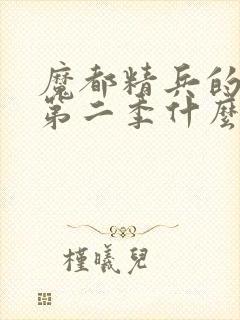 魔都精兵的
第二季什麼
槿曦兒